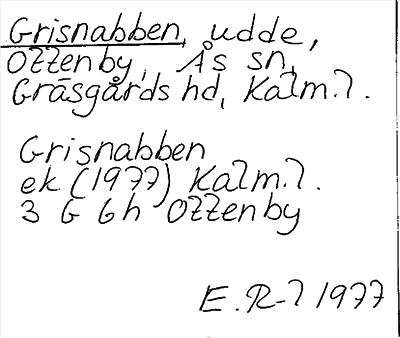 Grisnabben, udde,
Ottenby, Ås sn,
Gräsgårds hd, Kalm.l.
Grisnabben
ek (1977) Kalm.l.
3 G 6h Ottenby
E.R-l 1977